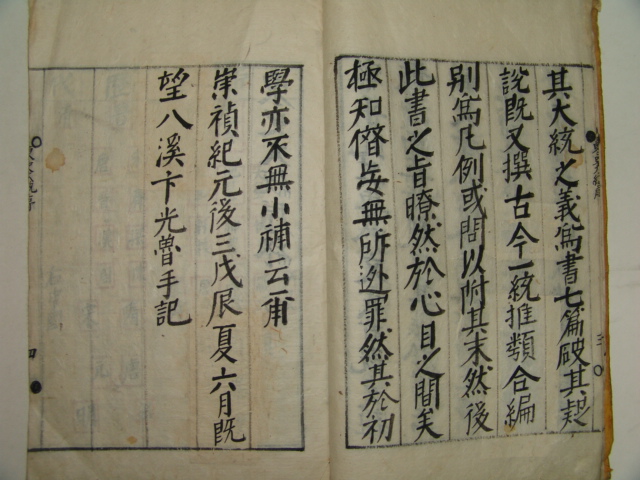 其大統之義寫書七篇破其疑
說既又撰古今一統推類合編
別寫凡例或問以附其末然後
此書之旨瞭然於心目之間矣
極知僭妄無所逃罪然其於初
學亦不無小補云爾
崇禎紀元後三戊辰夏六月既
望八溪卞光魯手記